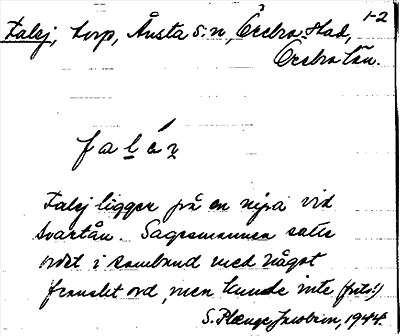 1-2
Falej, torp, Ånsta s:n, Örebro stad,
Örebro län.
falén
Falej ligger på en nipa vid
Svartån. Sagesmannen satte
ordet i samband med något
franskt ord, men kunde inte (precis!)
S. Plænge Jacobson, 1944.